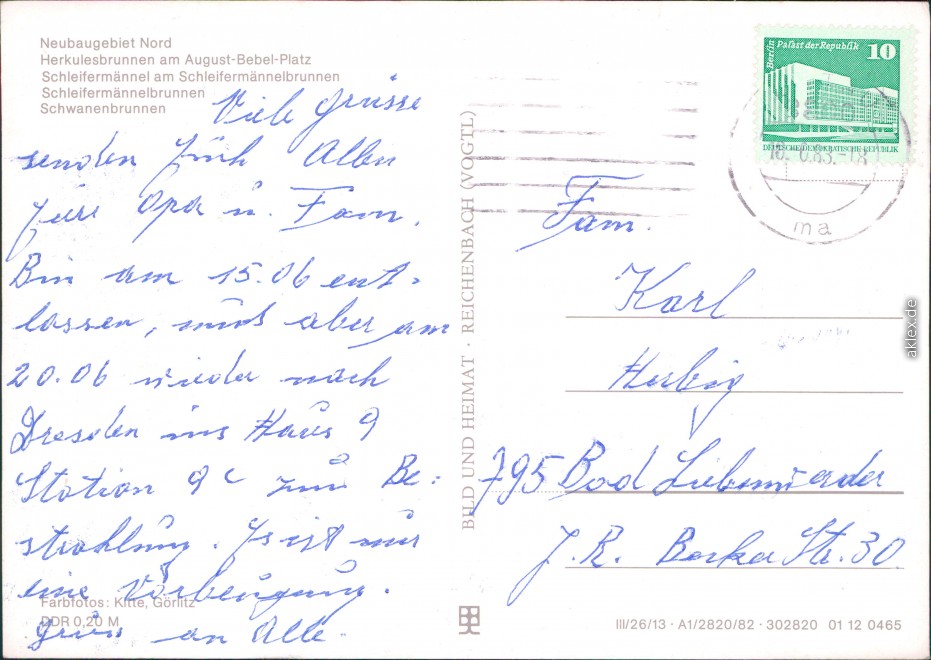 Neubaugebiet Nord
Herkulesbrunnen am August-Bebel-Platz
Schleifermännel am Schleifermännelbrunnen
Schleifermännelbrunnen
Schwanenbrunnen
Viele Grüsse
senden Euch Allen
Eure Opa u. Fam.
Bin am 15.06 ent-
lassen, muß aber am
20.06 wieder nach
Dresden ins Haus 9
Station 9c zur Be:
strahlung. Es ist nur
eine Vorbeugung.
Gruss an Alle.
Farbfotos: Kitte, Görlitz
DDR 0,20 M
BILD UND HEIMAT · REICHENBACH (VOGTL)
Berlin Palast der Republik 10
DEUTSCHE DEMOKRATISCHE REPUBLIK
83.-18
ma
Fam.
Karl
Herbig
795 Bad Liebenwerda
J. R. Becker Str. 30
III/26/13 · A1/2820/82 · 302820 01 12 0465
aklex.de